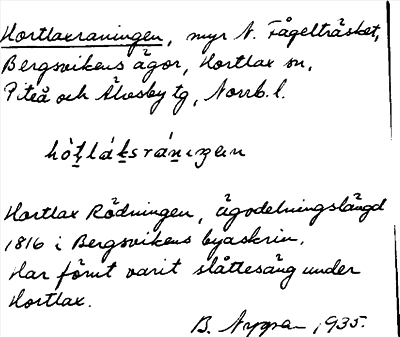 Hortlaxraningen, myr N. Fågelträsket,
Bergsvikens ägor, Hortlax sn,
Piteå och Älvsby tg, Norrb. l.
hòt̯lák̯sráṉıŋen
Hortlax Rådningen, ägodelningslängd
1816 i Bergsvikens byaskrin.
Har förut varit slåtteräng under
Hortlax.
B. Nygren, 1935.